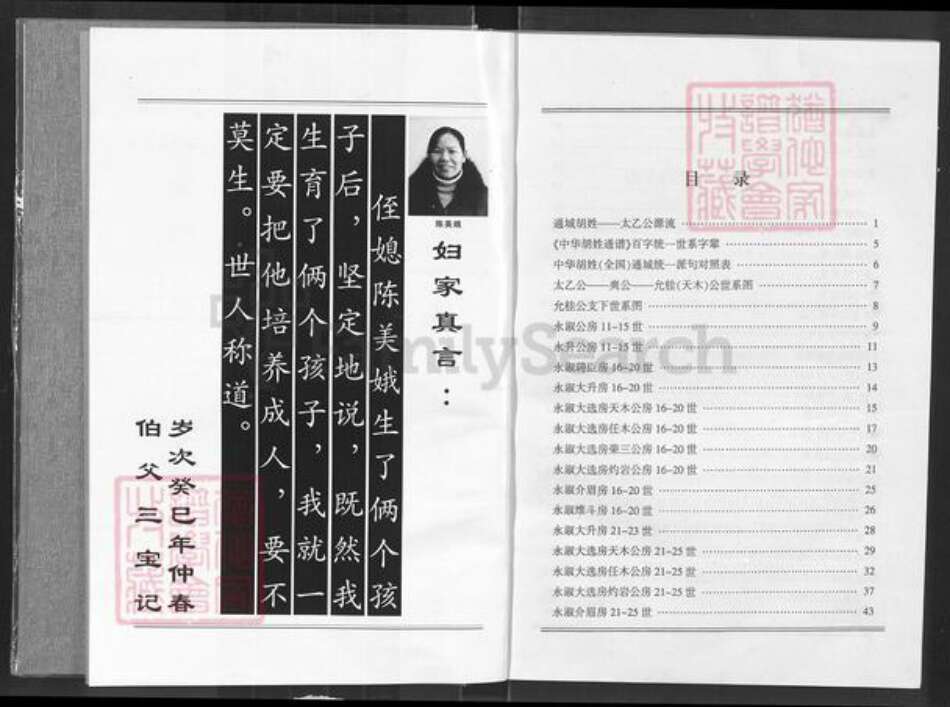 陈美娥
妇家真言：
侄媳陈美娥生了俩个孩
子后，坚定地说，既然我
生育了俩个孩子，我就一
定要把他培养成人，要不
莫生。世人称道。
岁次癸巳年仲春
伯父三宝记
目 录
通城胡姓——太乙公源流 1
《中华胡姓通谱》百字统一世系字辈 5
中华胡姓(全国)通城统一派句对照表 6
太乙公——奭公——允桂(天木)公世系图 7
允桂公支下世系图 8
永淑公房 11-15 世 9
永升公房 11-15 世 11
永淑 房 16-20 世 13
永淑大升房 16-20 世 14
永淑大选房天木公房 16-20 世 15
永淑大选房任木公房 16-20 世 17
永淑大选房荣三公房 16-20 世 20
永淑大选房灼岩公房 16-20 世 21
永淑介眉房 16-20 世 25
永淑维斗房 16-20 世 26
永淑大升房 21-23 世 28
永淑大选房天木公房 21-25 世 29
永淑大选房任木公房 21-25 世 32
永淑大选房灼岩公房 21-25 世 37
永淑介眉房 21-25 世 43
FamilySearch